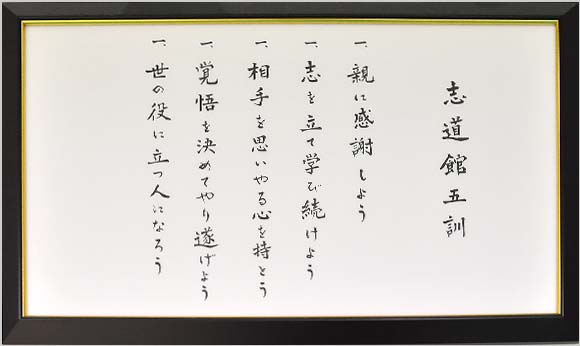 志道館五訓
一、親に感謝しよう
一、志を立て学び続けよう
一、相手を思いやる心を持とう
一、覚悟を決めてやり遂げよう
一、世の役に立つ人になろう